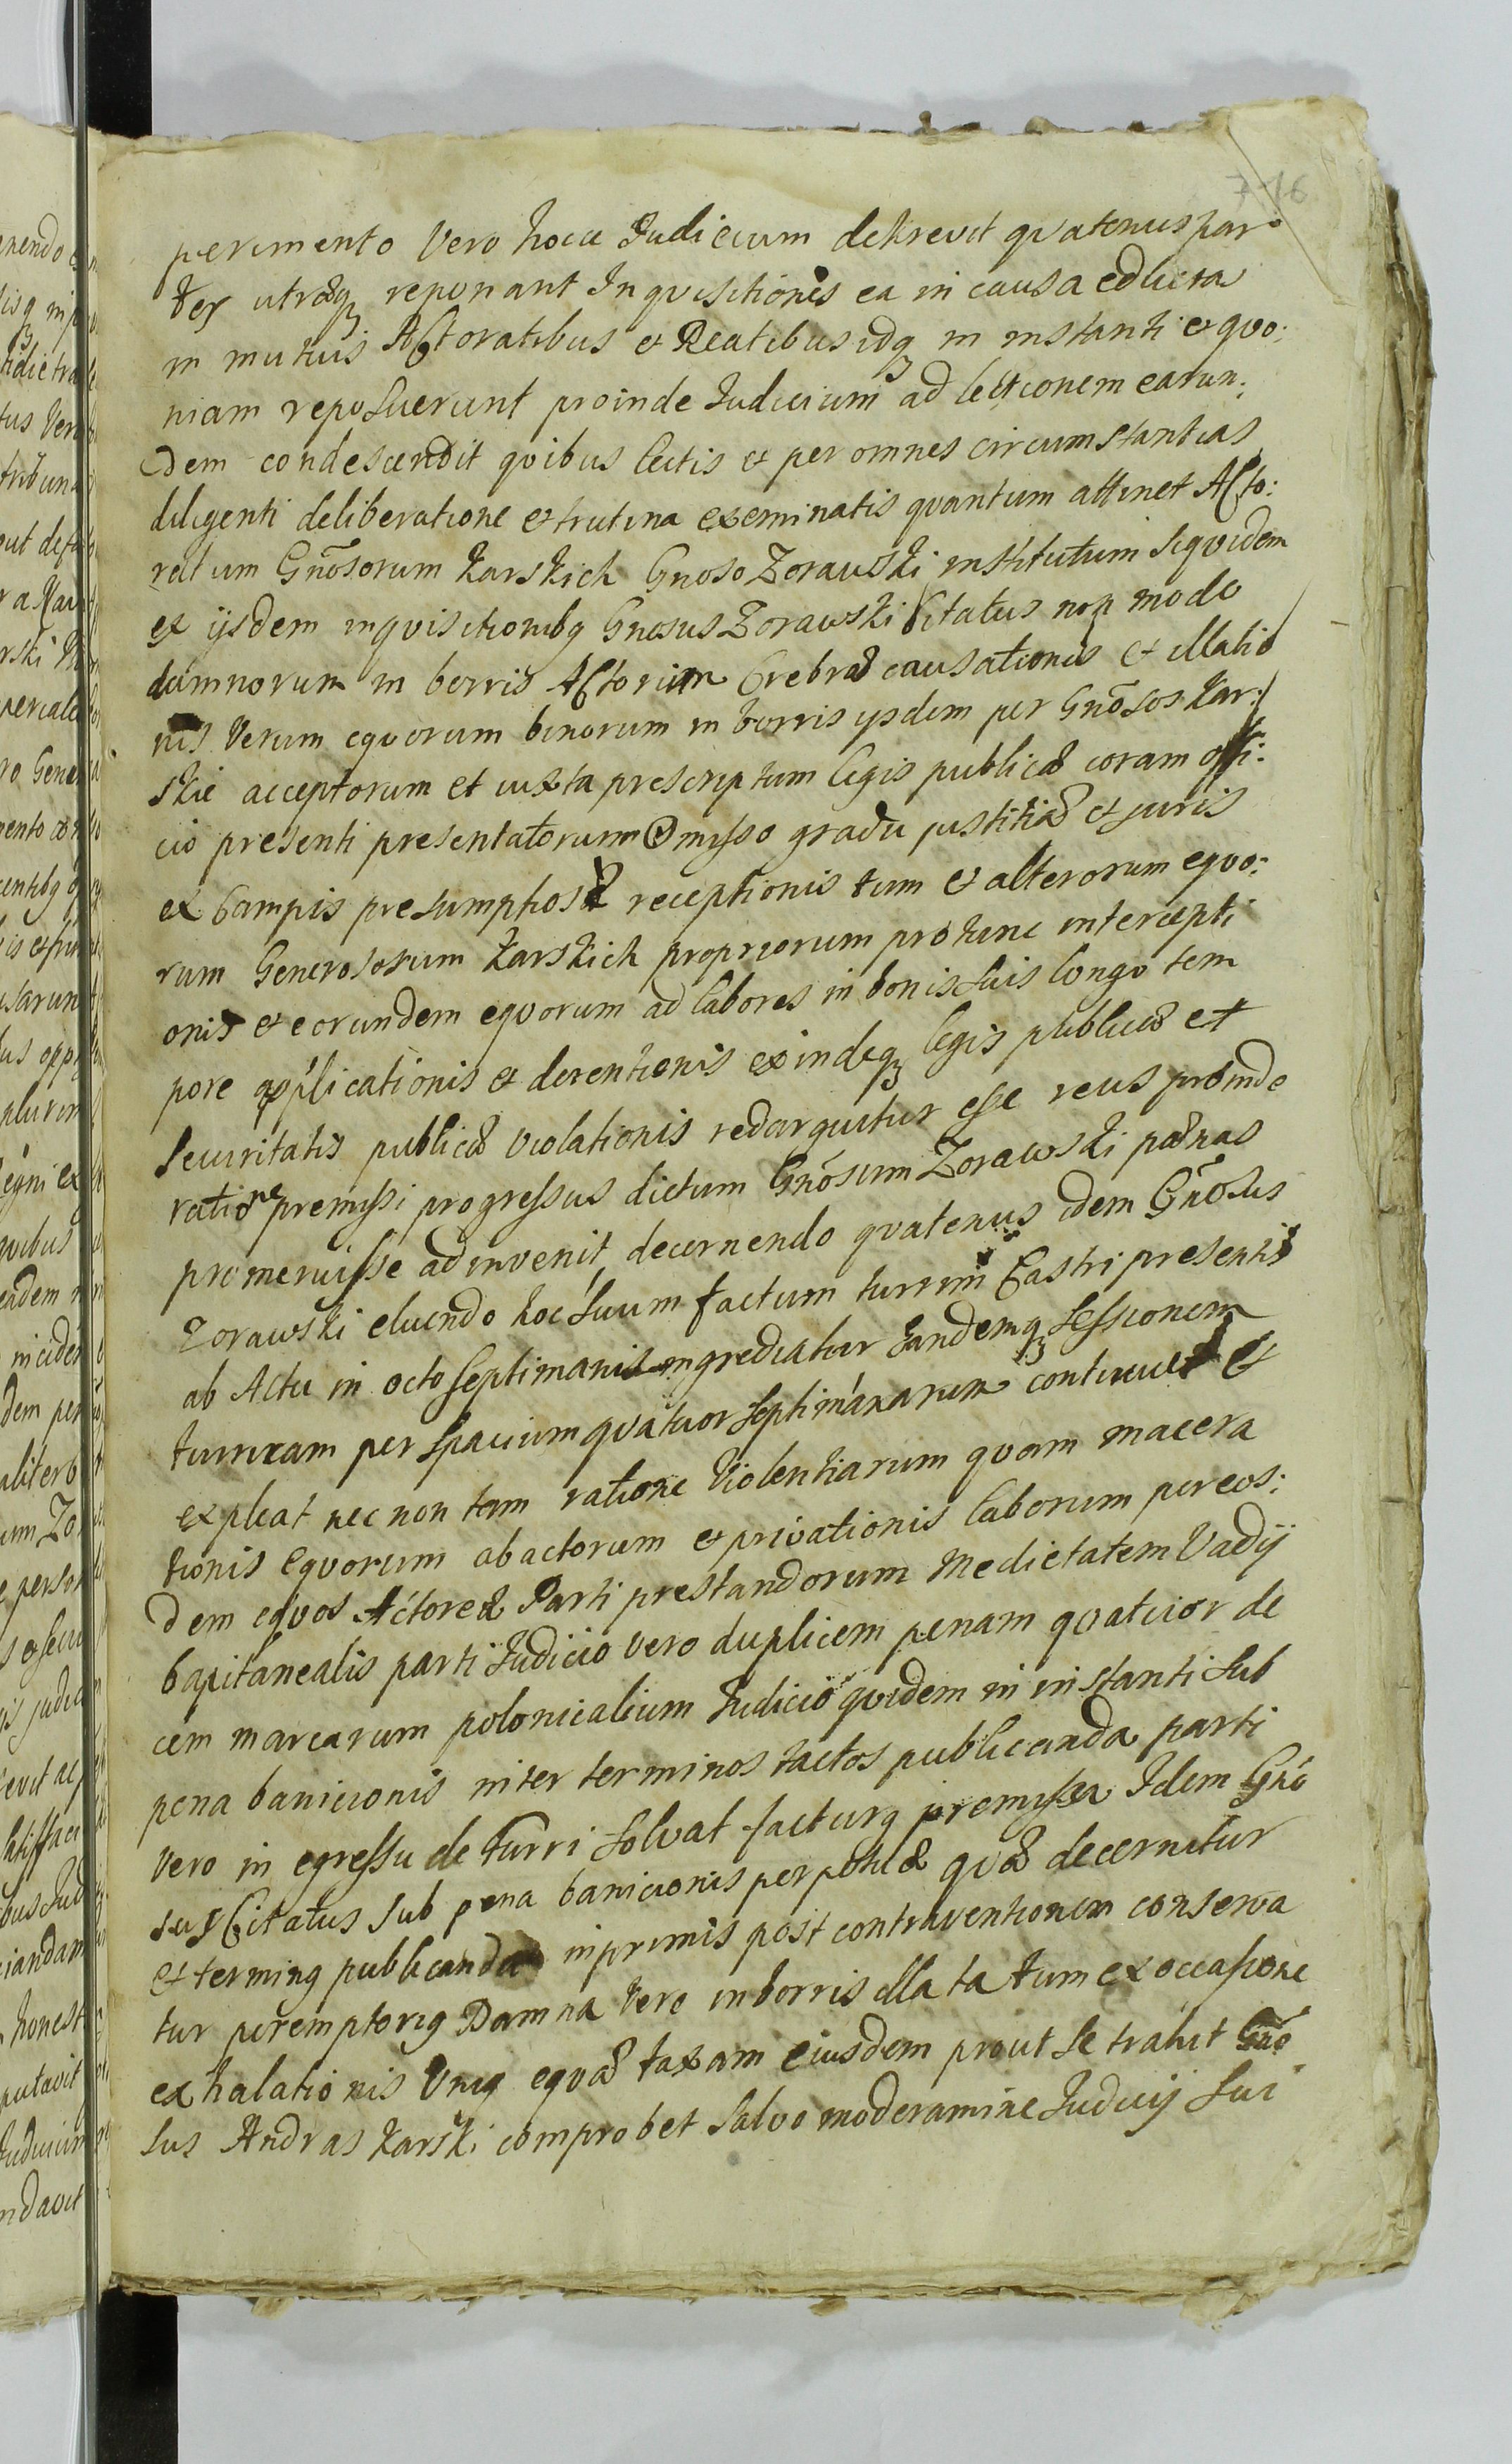 716
perimento Vero hocce Judicium dekrevit qvatenus par
tes utraeq reponant Inqvisitiones ea in causa eductas
in mutuis Actoratibus et Reatibus idq in instanti et qvo:
niam reposuerunt proinde Judicium ad lectionem earun:
dem condescendit qvibus lectis et per omnes circumstantias
diligenti deliberatione et trutina exeminatis qvantum attinet Acto:
ratum Gnosorum Karskich Gnoso Zorawski institutum siqvidem
ex ijsdem inqvisitionibq Gnosus Zorawski Citatus non modo
damnorum in borris Actorum Crebrae causationis et illatio
nis Verum eqvorum binorum in borris ijsdem per Gnosos Kar:
skie acceptorum et iuxta prescriptum legis publicae coram offi:
cio presenti presentatorum omisso gradu justitiae et juris
ex Campis presumptiosae receptionis tum et alterorum eqvo:
rum Generosorum Karskich propriorum protunc intercepti
onis et eorundem eqvorum ad labores in bonis suis longo tem
pore applicationis et detentionis exindeq legis publicae et
securitatis publicae violationis redarguitur esse reus proinde
ratione premissi progressus dictum Gnosum Zorawski paenas
promeruisse adinvenit, decernendo qvatenus idem Gnosus
Zorawski eluendo hoc suum factum turrim Castri presentis
ab Actu in octo septimanis ingrediatur tandemq sessionem
turream per spacium qvatuor septimanarum continuet et
expleat nec non tam ratione Violentiarum qvam macera
tionis Eqvorum abactorum et privationis laborum per eos:
dem eqvos Actoreae Parti prestandorum Medietatem Vadij
Capitanealis parti Judicio vero duplicem penam qvatuor de
cem marcarum polonicalium Judicio qvidem in instanti sub
pena banicionis inter terminos tactos publicanda parti
vero in egressu de turri solvat facturq premissa Idem Gno
sus Citatus sub pena banicionis perpetuae qvae decernitur
et terminq publicandae inprimis post contraventionem conserva
tur peremptoriq Damna Vero in borris illata tum ex occasione
exhalationis Uniq eqvae taxam eiusdem prout se trahit Gno
sus Andras Karski comprobet salvo moderamine Judicij sui